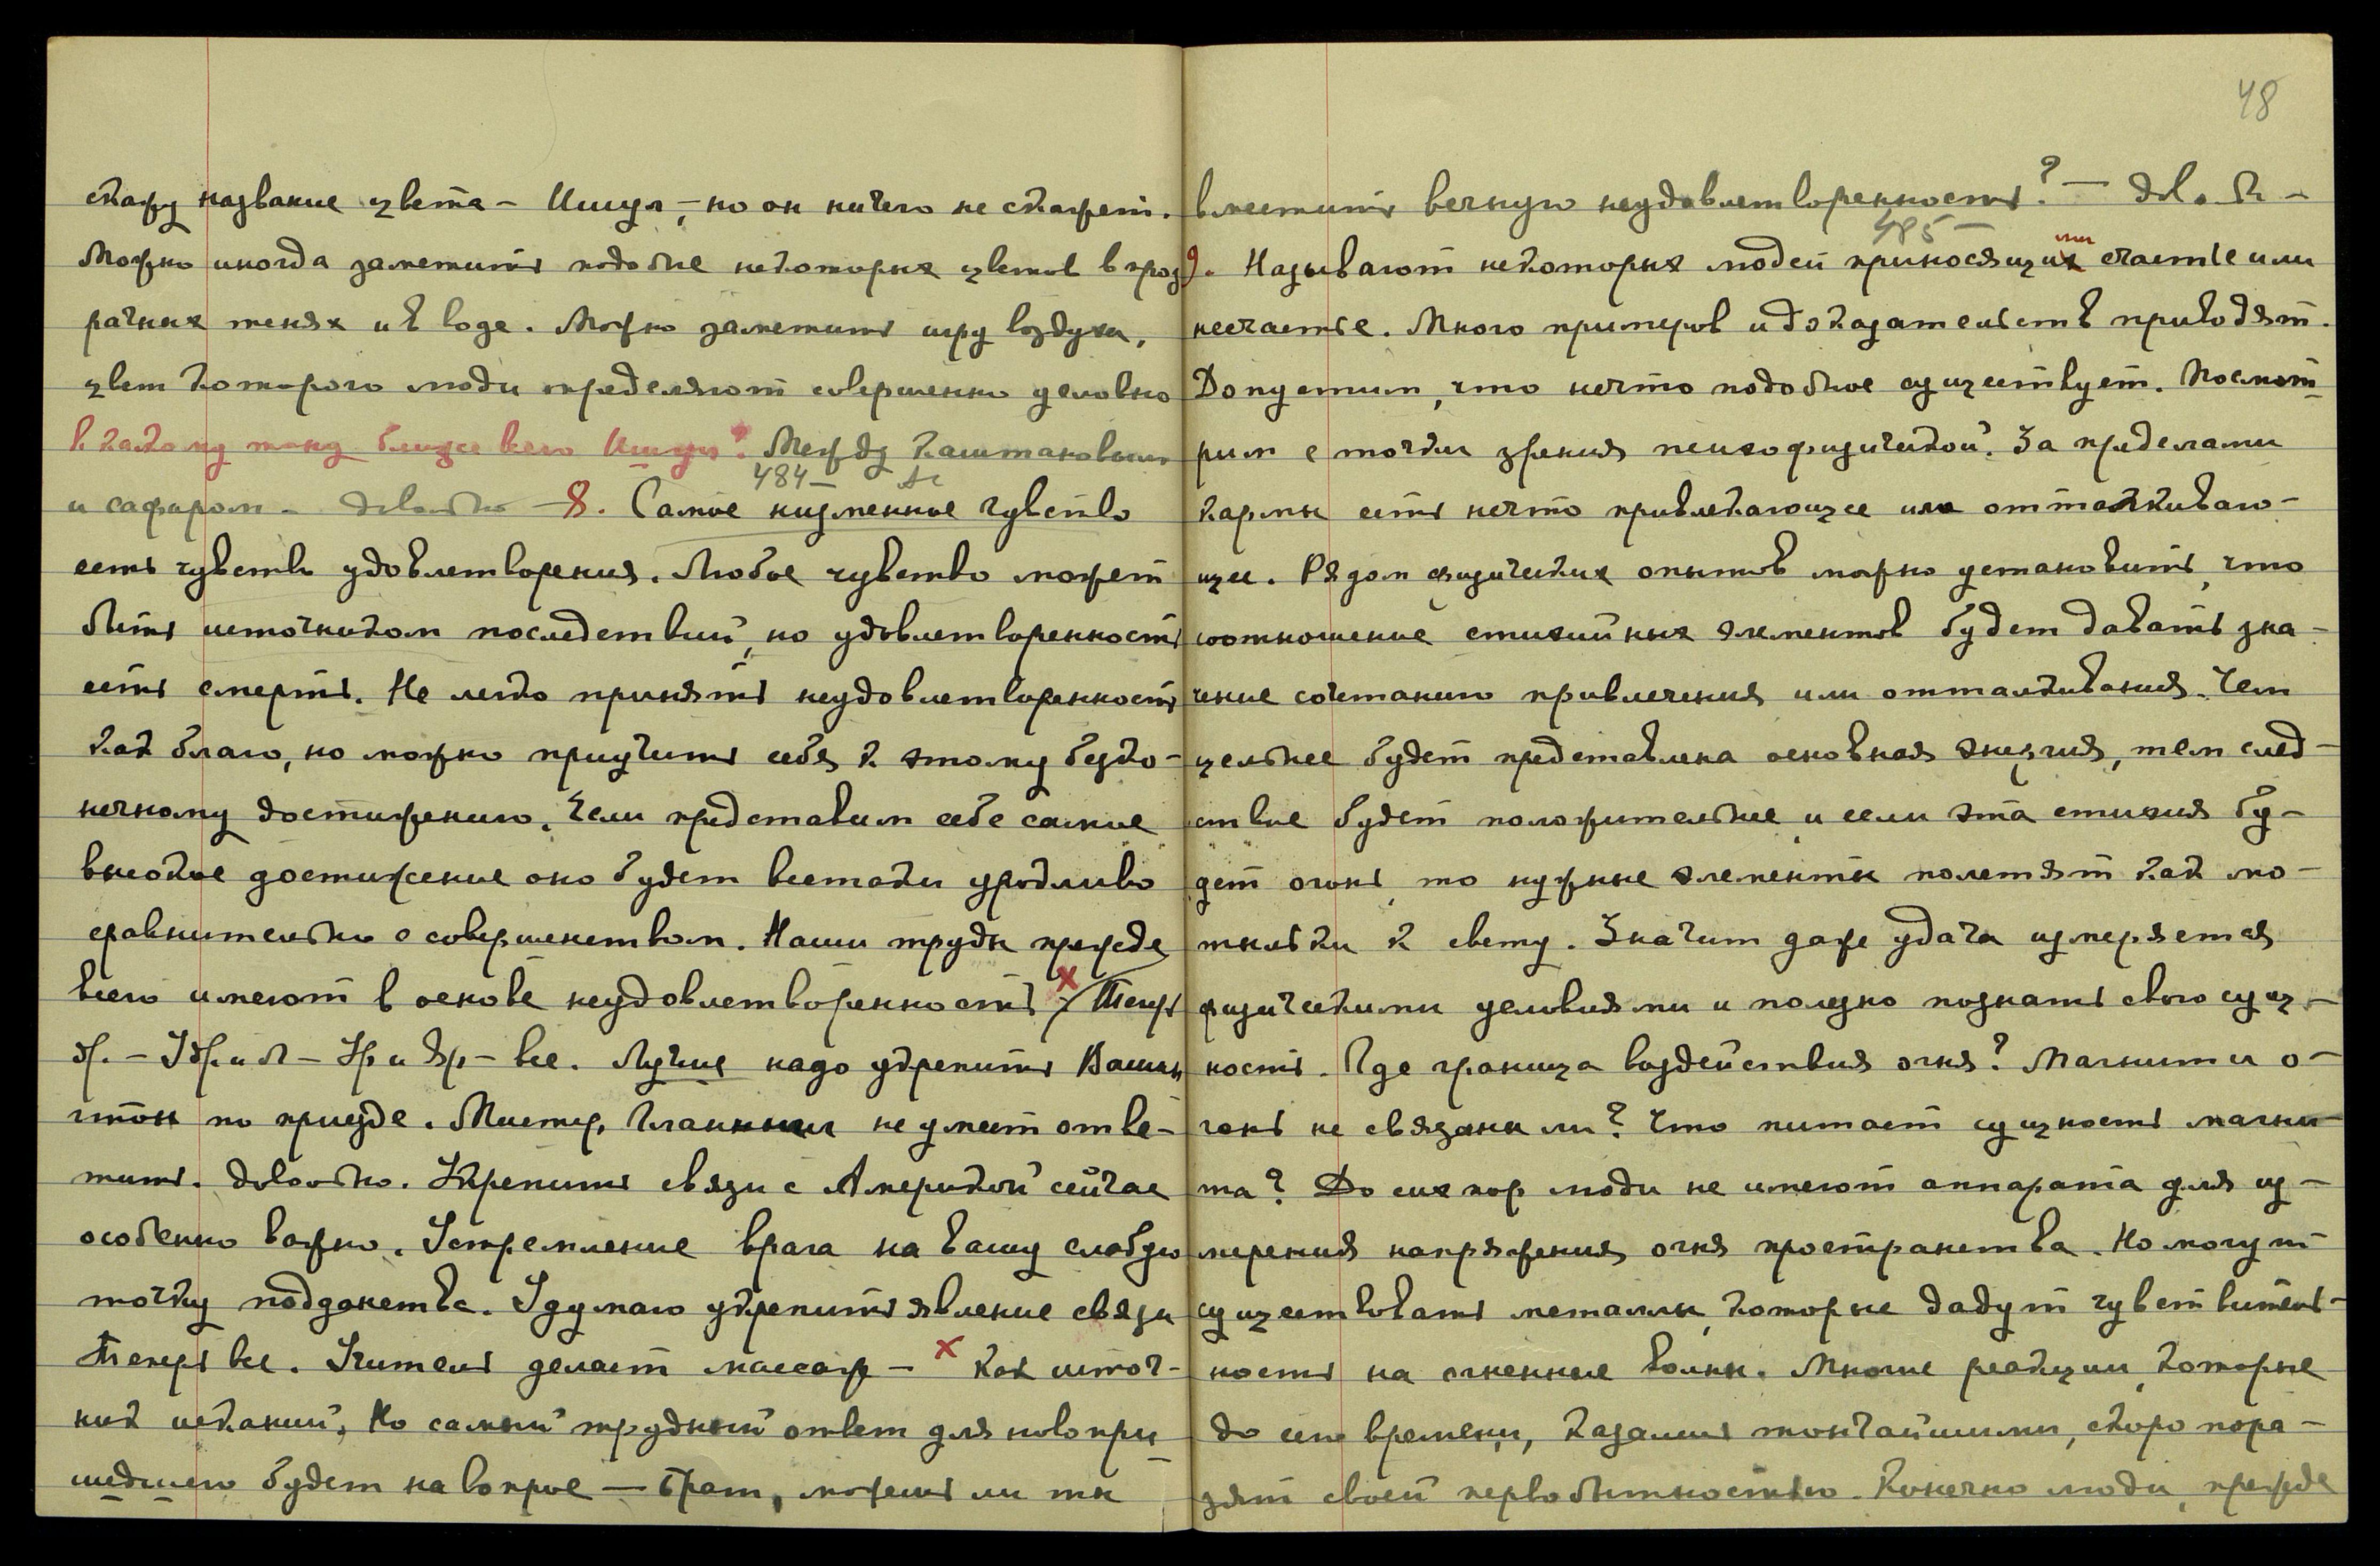 скажу название цвета – Ишул, – но он ничего не скажет.
Можно иногда заметить подобие некоторых цветов в проз
рачных тенях и в воде. Можно заметить игру воздуха,
цвет которого люди определяют совершенно условно
К какому тону ближе всего Ишул? Между каштановым
484 –
и сафиром – довольно – 8. Самое низменное чувство
есть чувство удовлетворения. Любое чувство может
быть источником последствий, но удовлетворенность
есть смерть. Не легко принять неудовлетворенность
как благо, но можно приучить себя к этому беско–
нечному достижению. Если представим себе самое
высокое достижение оно будет всетаки уродливо
сравнительно с совершенством. Наши труды прежде
всего имеют в основе неудовлетворенность x
– все. Лучше надо укрепить Ваших
по приезде. не умеет отве–
тить. довольно. Укрепить связи с Америкой сейчас
особенно важно. Устремление врага на вашу слабую
точку подданства. Я думаю укрепить явление связи
Теперь все. Учитель делает массаж – x Как источ–
ник исканий. Но самый трудный ответ для новопри
шедшего будет на вопрос – Брат, можешь ли ты
48
вместить вечную неудовлетворенность? –
485 –
9. Называют некоторых людей приносящими счастье или
несчастье. Много примеров и доказательств приводят.
Допустим, что нечто подобное существует. Посмот–
рим с точки зрения психофизической. За пределами
кармы есть нечто привлекающее или отталкиваю–
щее. Рядом физических опытов можно установить, что
соотношение стихийных элементов будет давать зна–
чение сочетанию привлечения или отталкивания. Чем
цельнее будет представлена основная энергия, тем след–
ствие будет положительнее и если эта стихия бу–
дет огонь, то нужные элементы полетят как мо–
тыльки к свету. Значит даже удача измеряется
физическими условиями и полезно познать свою сущ–
ность. Где граница воздействия огня? Магнит и о–
гонь не связаны ли? Что питает сущность магни–
та? До сих пор люди не имеют аппарата для из–
мерения напряжения огня пространства. Но могут
существовать металлы, которые дадут чувствитель–
ность на огненные волны. Многие реакции, которые
до сего времени, казались тончайшими, скоро пора–
зят своей первобытностью. Конечно люди, прежде